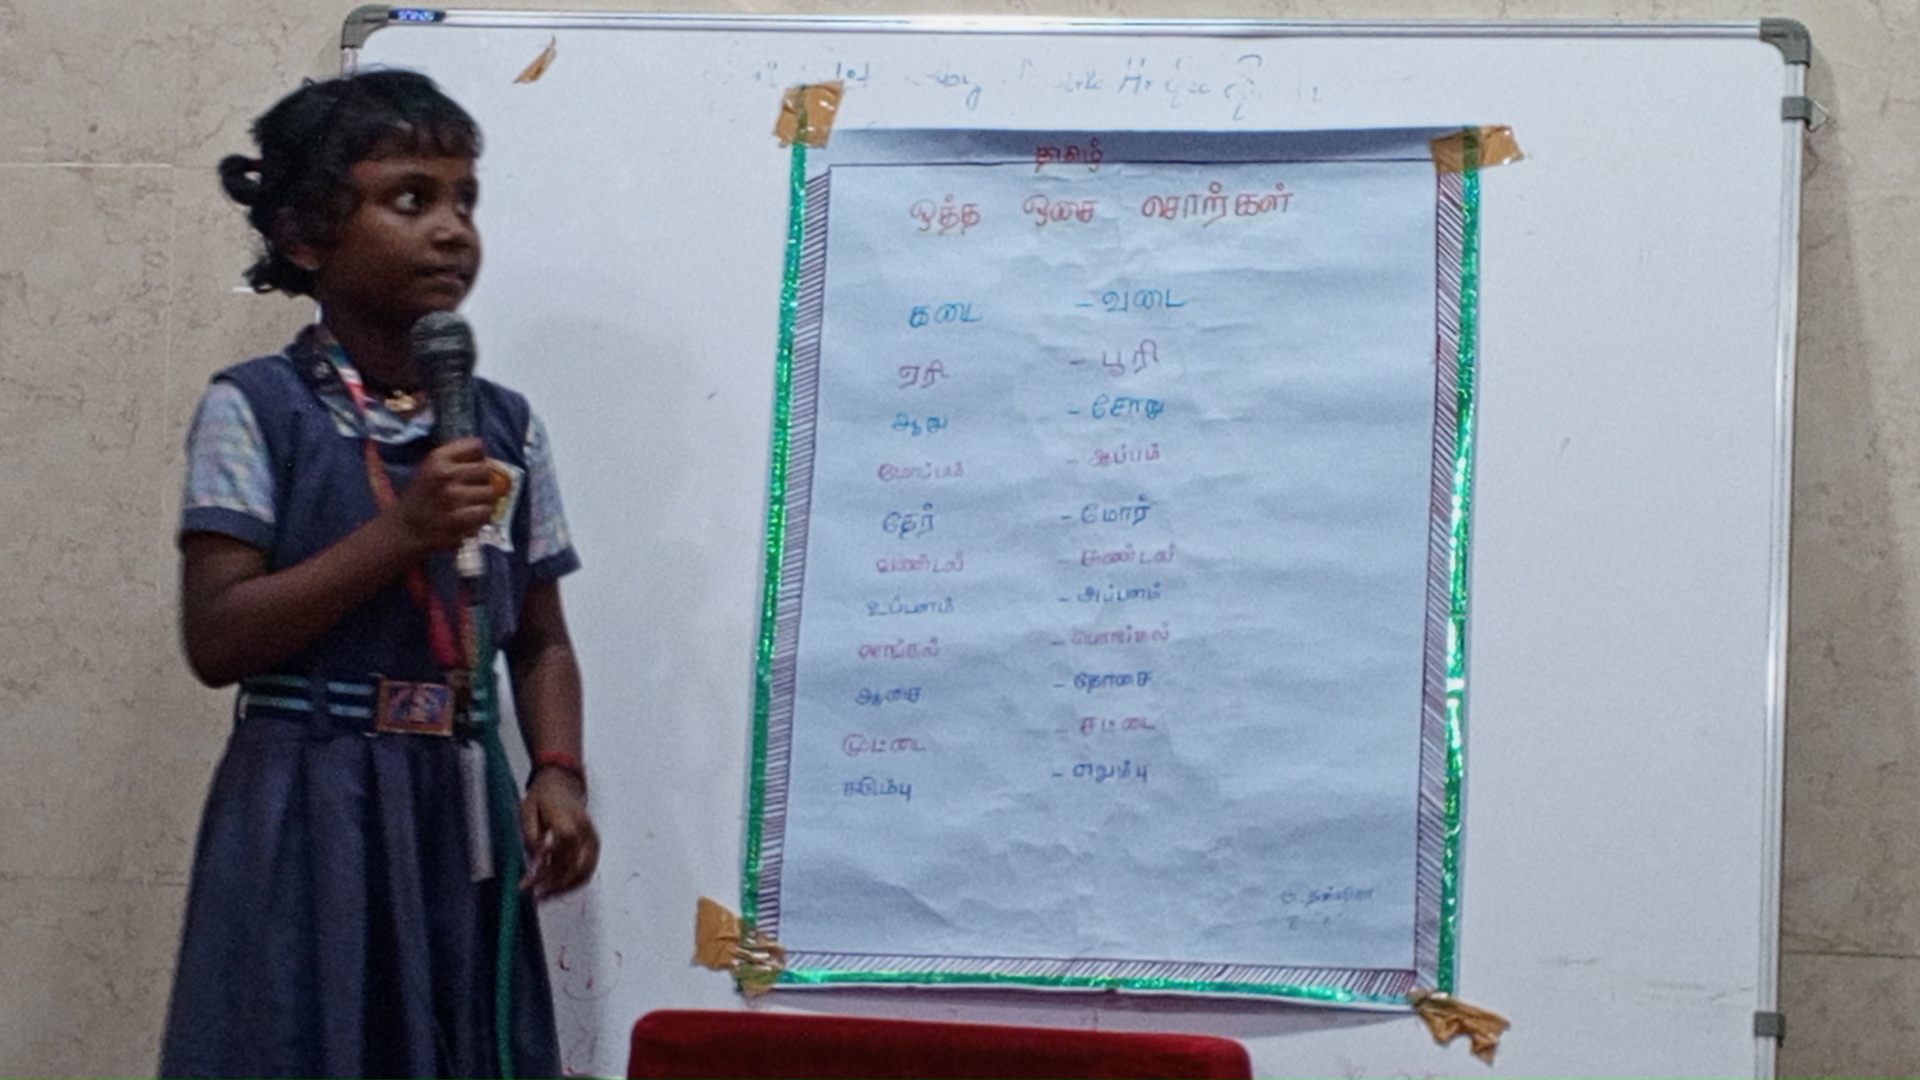 தமிழ்
ஒத்த ஓசை சொற்கள்
கடை - வடை
ஏரி - பூரி
ஆறு - சோறு
மோப்பம் - ஆப்பம்
தேர் - மோர்
வண்டல் - சுண்டல்
உப்பளம் - அப்பளம்
- பொங்கல்
ஆசை - தோசை
முட்டை - சட்டை
கரும்பு - எறும்பு